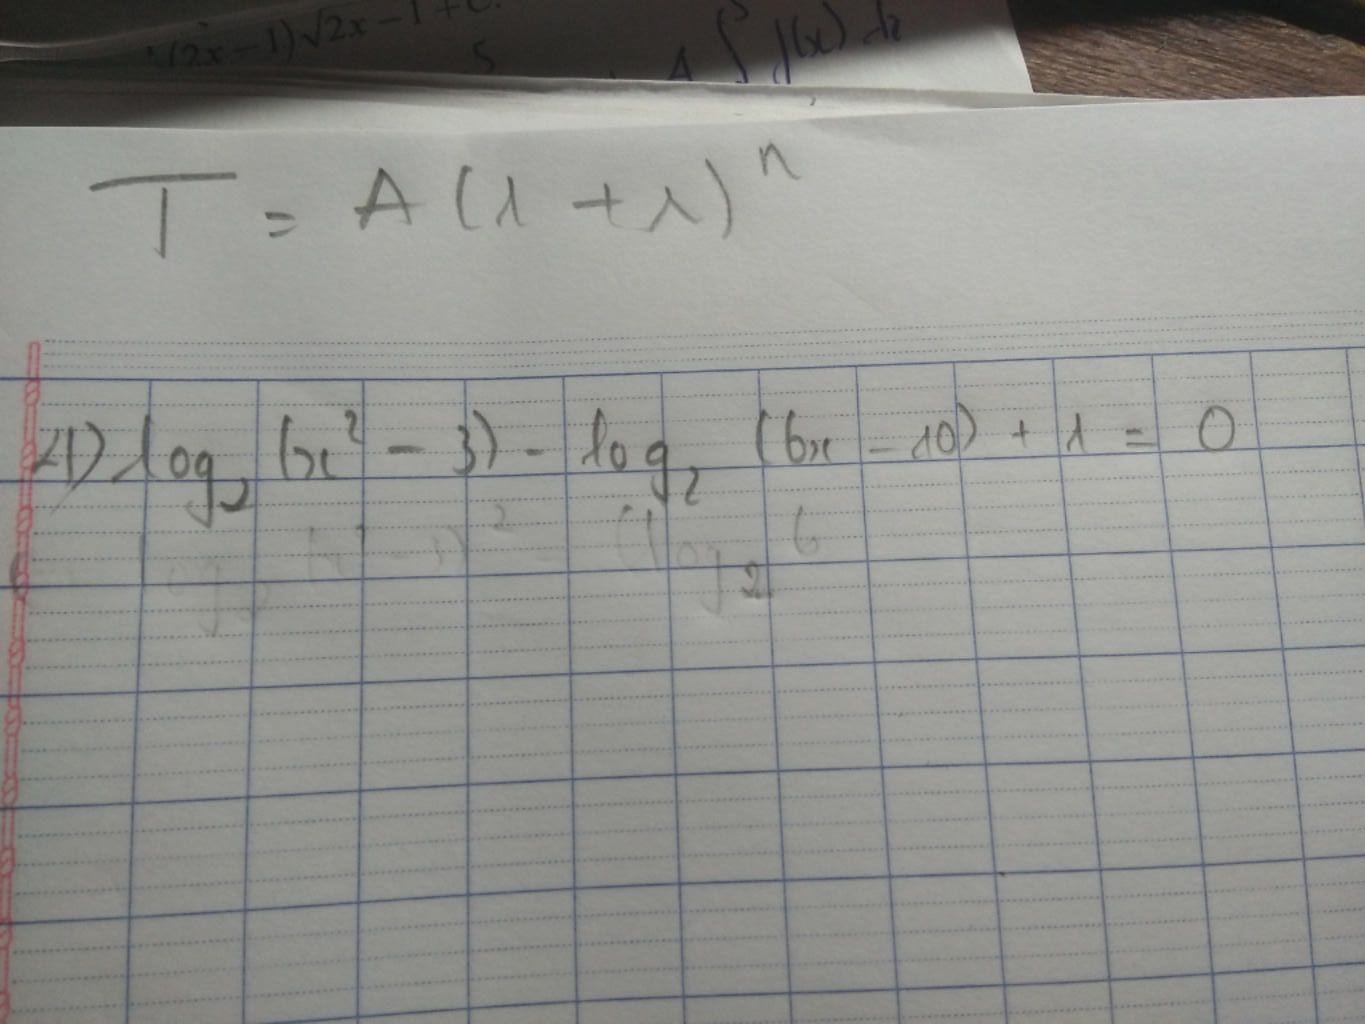 (2x-1)√2x-1+C.
5
A ∫ f(x) dx
T = A(1+r)ⁿ
21) log₂(x² - 3) - log₂(6x - 10) + 1 = 0
log₂ 6